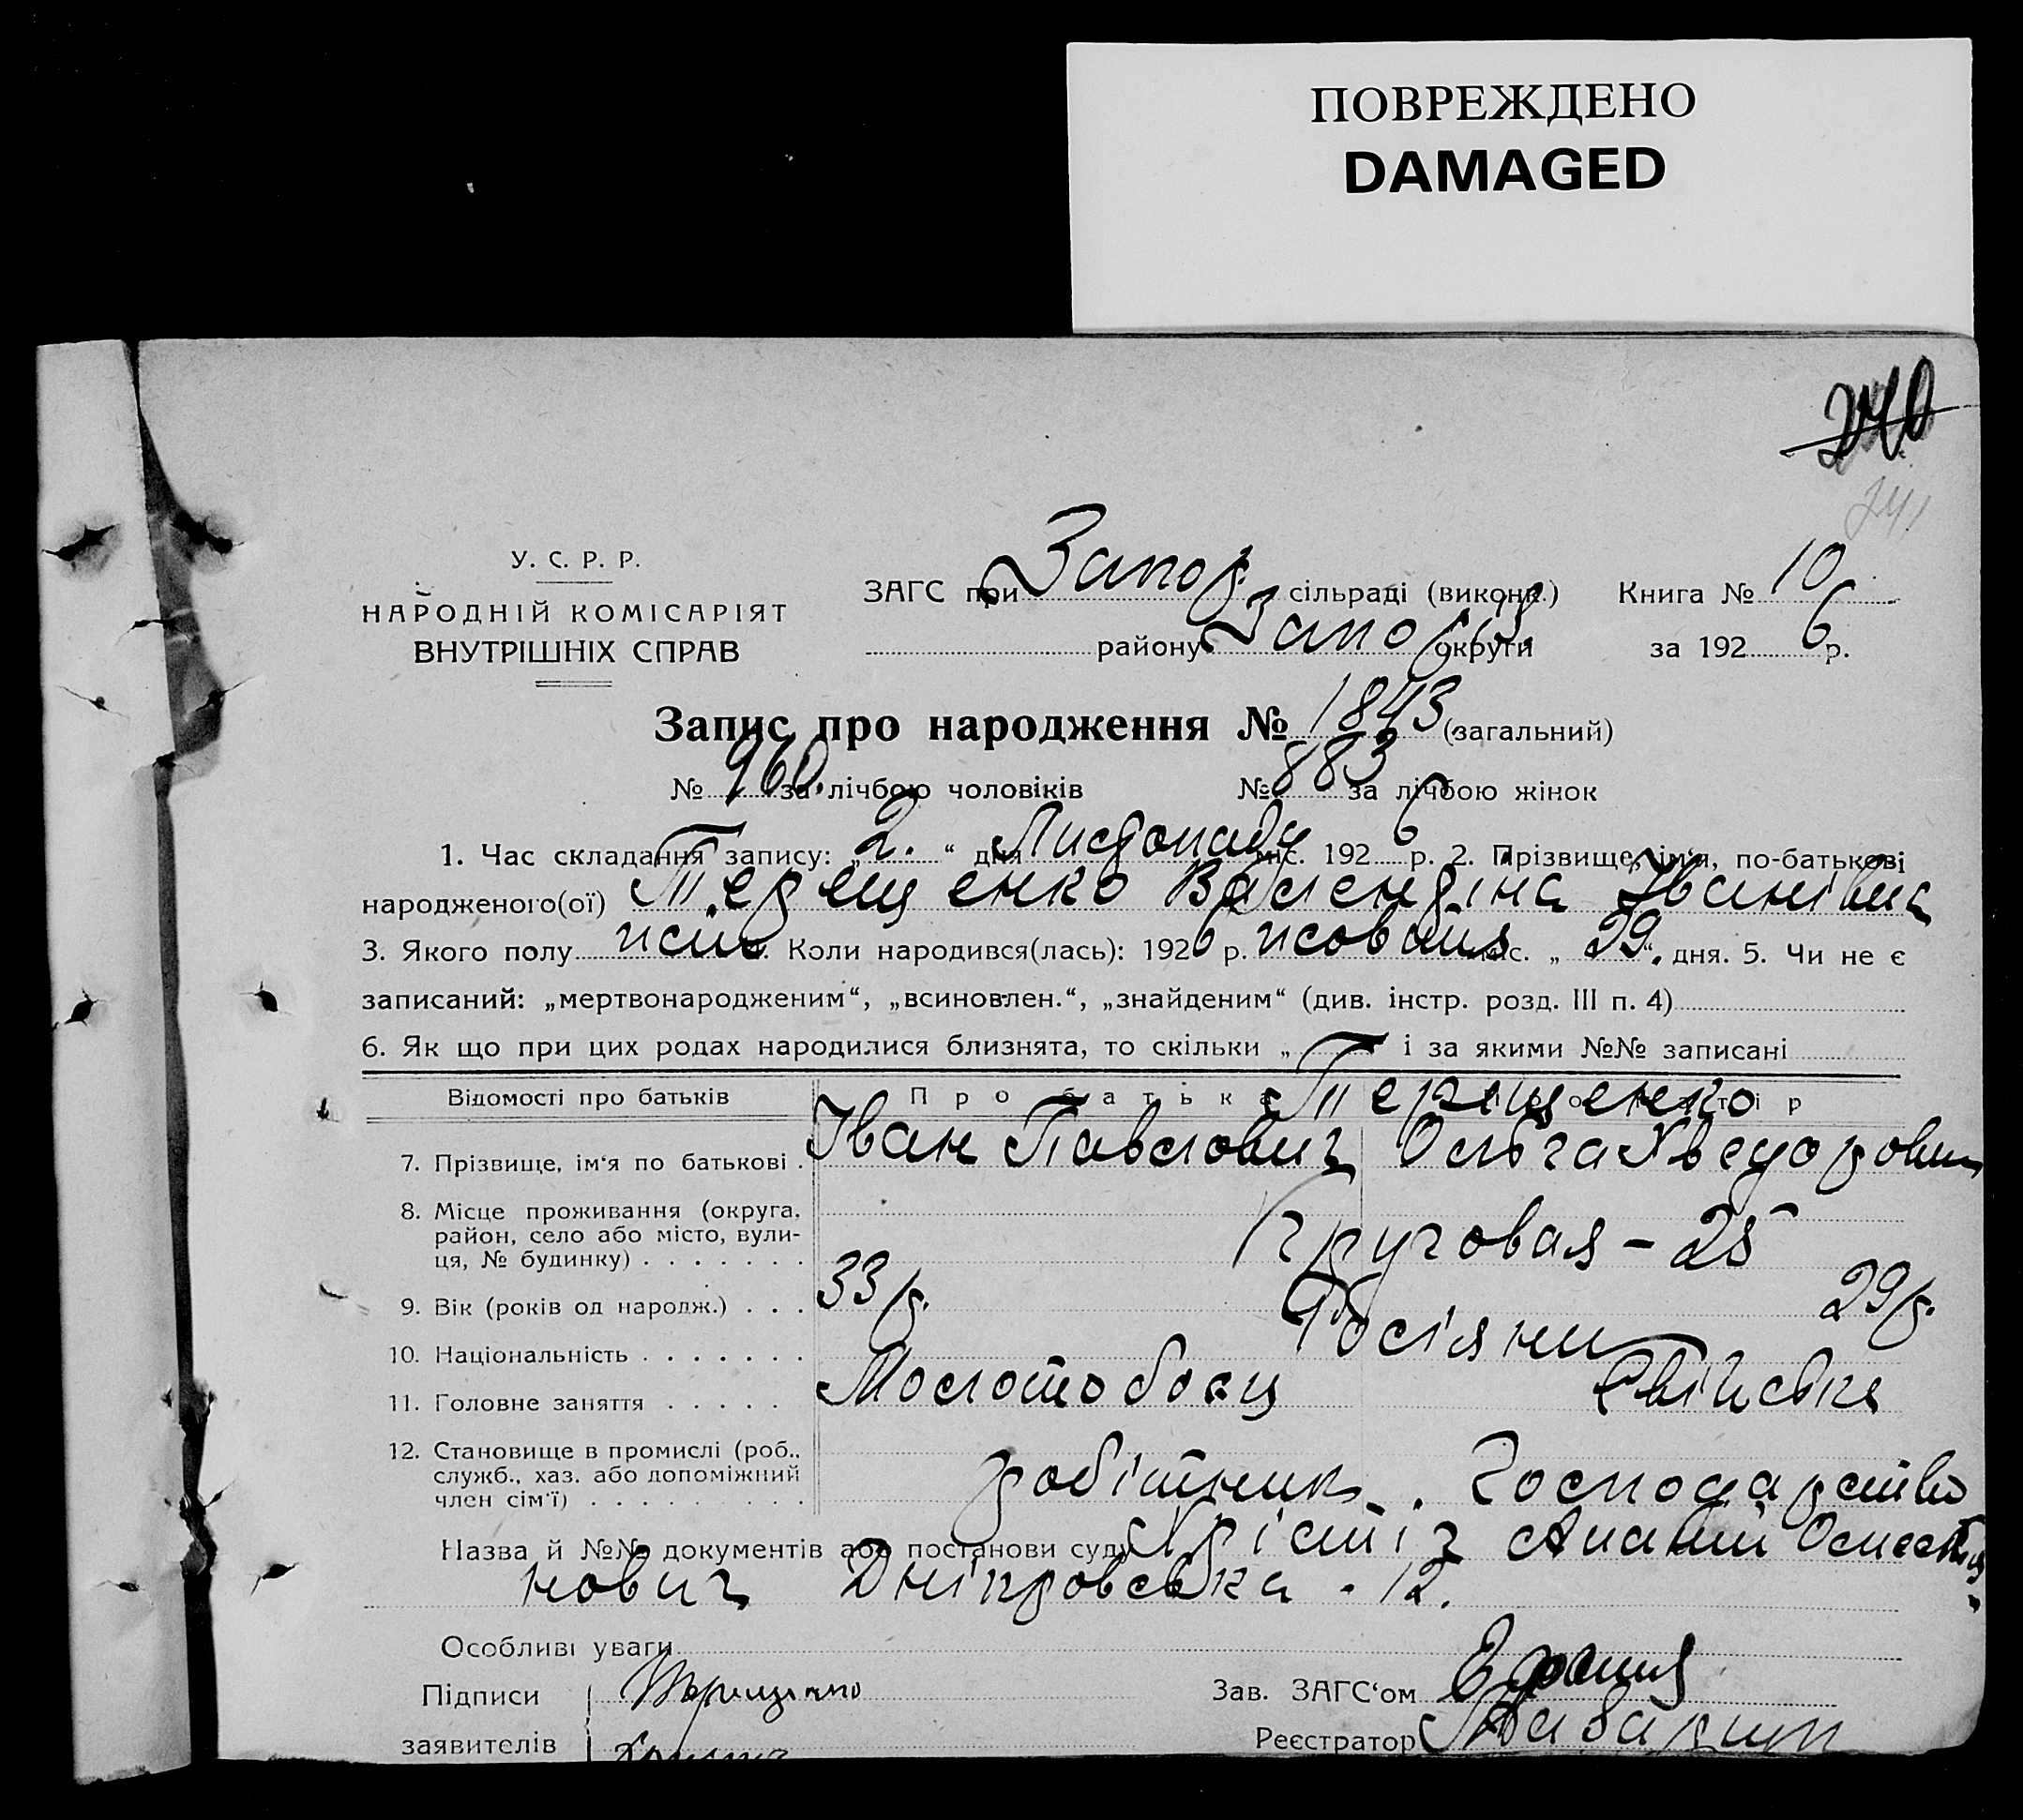 ПОВРЕЖДЕНО
DAMAGED
240
241
У. С. Р. Р.
НАРОДНІЙ КОМІСАРІЯТ
ВНУТРІШНІХ СПРАВ
ЗАГС при Запор. сільраді (викони.) Книга № 10
району Запоріз округи за 1926 р.
Запис про народження № 1843 (загальний)
№ 960. за лічбою чоловіків № 883 за лічбою жінок
1. Час складання запису: „2.“ дня Листопаду міс. 1926 р. 2. Прізвище, ім'я, по-батькові
народженого(ої) Терещенко Валентіна Іванівна
3. Якого полу жін. Коли народився(лась): 1926 р. жовтня міс. „29“. дня. 5. Чи не є
записаний: „мертвонародженим“, „всиновлен.“, „знайденим“ (див. інстр. розд. III п. 4)
6. Як що при цих родах народилися близнята, то скільки „ і за якими №№ записані
Відомості про батьків Про батька Про матір
Терещенко
7. Прізвище, ім'я по батькові . Іван Павлович Ольга Хведоровн
8. Місце проживання (округа,
район, село або місто, вули-
ця, № будинку) . . . . . . . Кругова​я – 25
9. Вік (років од народж.) . . . 33/р. 29/р.
10. Національність . . . . . . . Росіяни
11. Головне заняття . . . . . Молотобоец Свійська
12. Становище в промислі (роб.,
служб., хаз. або допоміжний
член сім'ї) . . . . . . . . . робітник. Господарство
Назва й №№ документів або постанови суду Ананій
нович Дніпровська - 12.
Особливі уваги
Підписи Терещенко Зав. ЗАГС'ом
заявителів Реєстратор